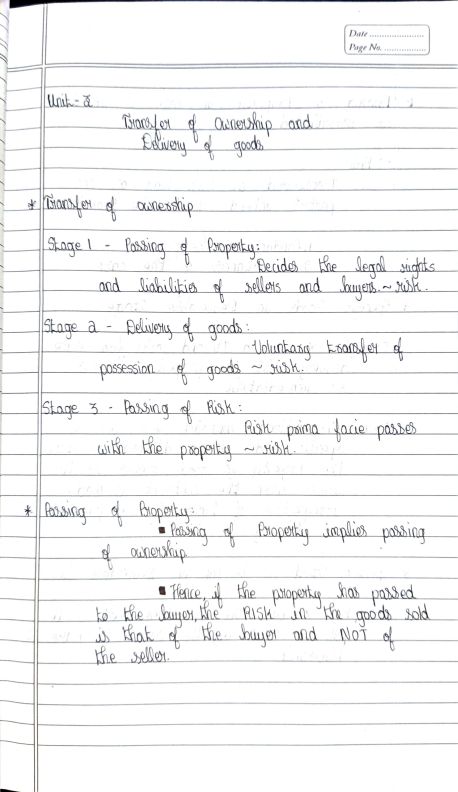 Date ......................
Page No. ................
Unit-2
Transfer of ownership and
Delivery of goods
* Transfer of ownership
Stage 1 - Passing of Property:
Decides the legal rights
and liabilities of sellers and buyers. ~ risk.
Stage 2 - Delivery of goods:
Voluntary transfer of
possession of goods ~ risk.
Stage 3 - Passing of Risk:
Risk prima facie passes
with the property ~ risk.
* Passing of Property:
▪ Passing of Property implies passing
of ownership
▪ Hence, if the property has passed
to the buyer, the RISK in the goods sold
is that of the buyer and NOT of
the seller.